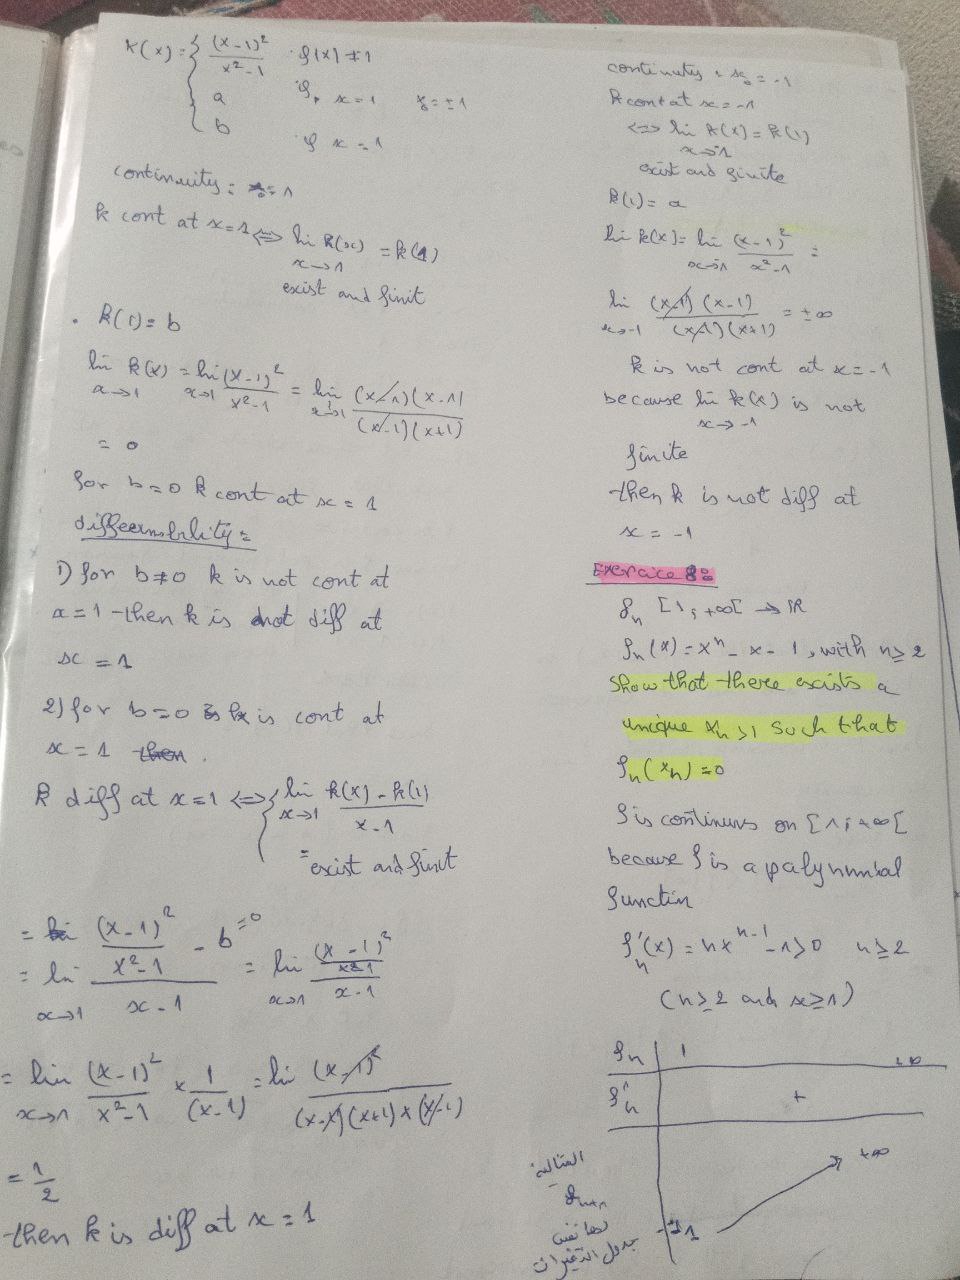 k(x) = { (x-1)² / x²-1 if |x| ≠ 1
a if x = 1 x = ±1
b if x = 1
continuity: x₀ = 1
k cont at x=1 <=> lim k(x) = k(1)
x→1
exist and finit
. k(1) = b
lim k(x) = lim (x-1)² / x²-1 = lim (x-1)(x-1) / (x-1)(x+1)
x→1 x→1 x→1
= 0
for b=0 k cont at x = 1
1) for b≠0 k is not cont at
x=1 then k is not diff at
x = 1
2) for b=0 k is cont at
x = 1 then .
k diff at x=1 <=> { lim k(x) - k(1) / x-1
x→1
= exist and finit
= lim (x-1)² / x²-1 - b =0
= lim / x-1 = lim (x-1)² / x²-1 / x-1
x→1 x→1
= lim (x-1)² / x²-1 × 1 / (x-1) = lim (x-1)² / (x-1)(x+1)×(x-1)
x→1
= 1/2
then k is diff at x = 1
continuty : x₀ = -1
k cont at x=-1
<=> lim k(x) = k(1)
x→-1
exist and finite
k(1) = a
lim k(x) = lim (x-1)² / x²-1 =
x→-1
lim (x-1)(x-1) / (x-1)(x+1) = ±∞
x→-1
k is not cont at x=-1
because lim k(x) is not
x→-1
finite
then k is not diff at
x = -1
Exercice 8:
fn [1; +∞[ → IR
fn(x) = xⁿ - x - 1, with n ≥ 2
show that there exists a
unique xn >1 such that
fn(xn) = 0
f is continuus on [1; +∞[
because f is a palynumial
functin
f'n(x) = nxⁿ⁻¹ - 1 > 0 n ≥ 2
(n ≥ 2 and x ≥ 1)
fn | 1 +∞
f'n | +
+∞
-1
المتالية
لها نفس
جدول التغيرات